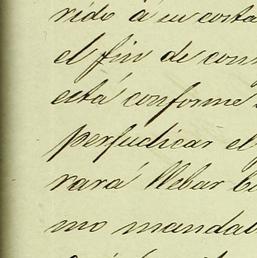 rido á su costa
el fin de con
está conforme
perjudicar el
rará llebar
mo mandab